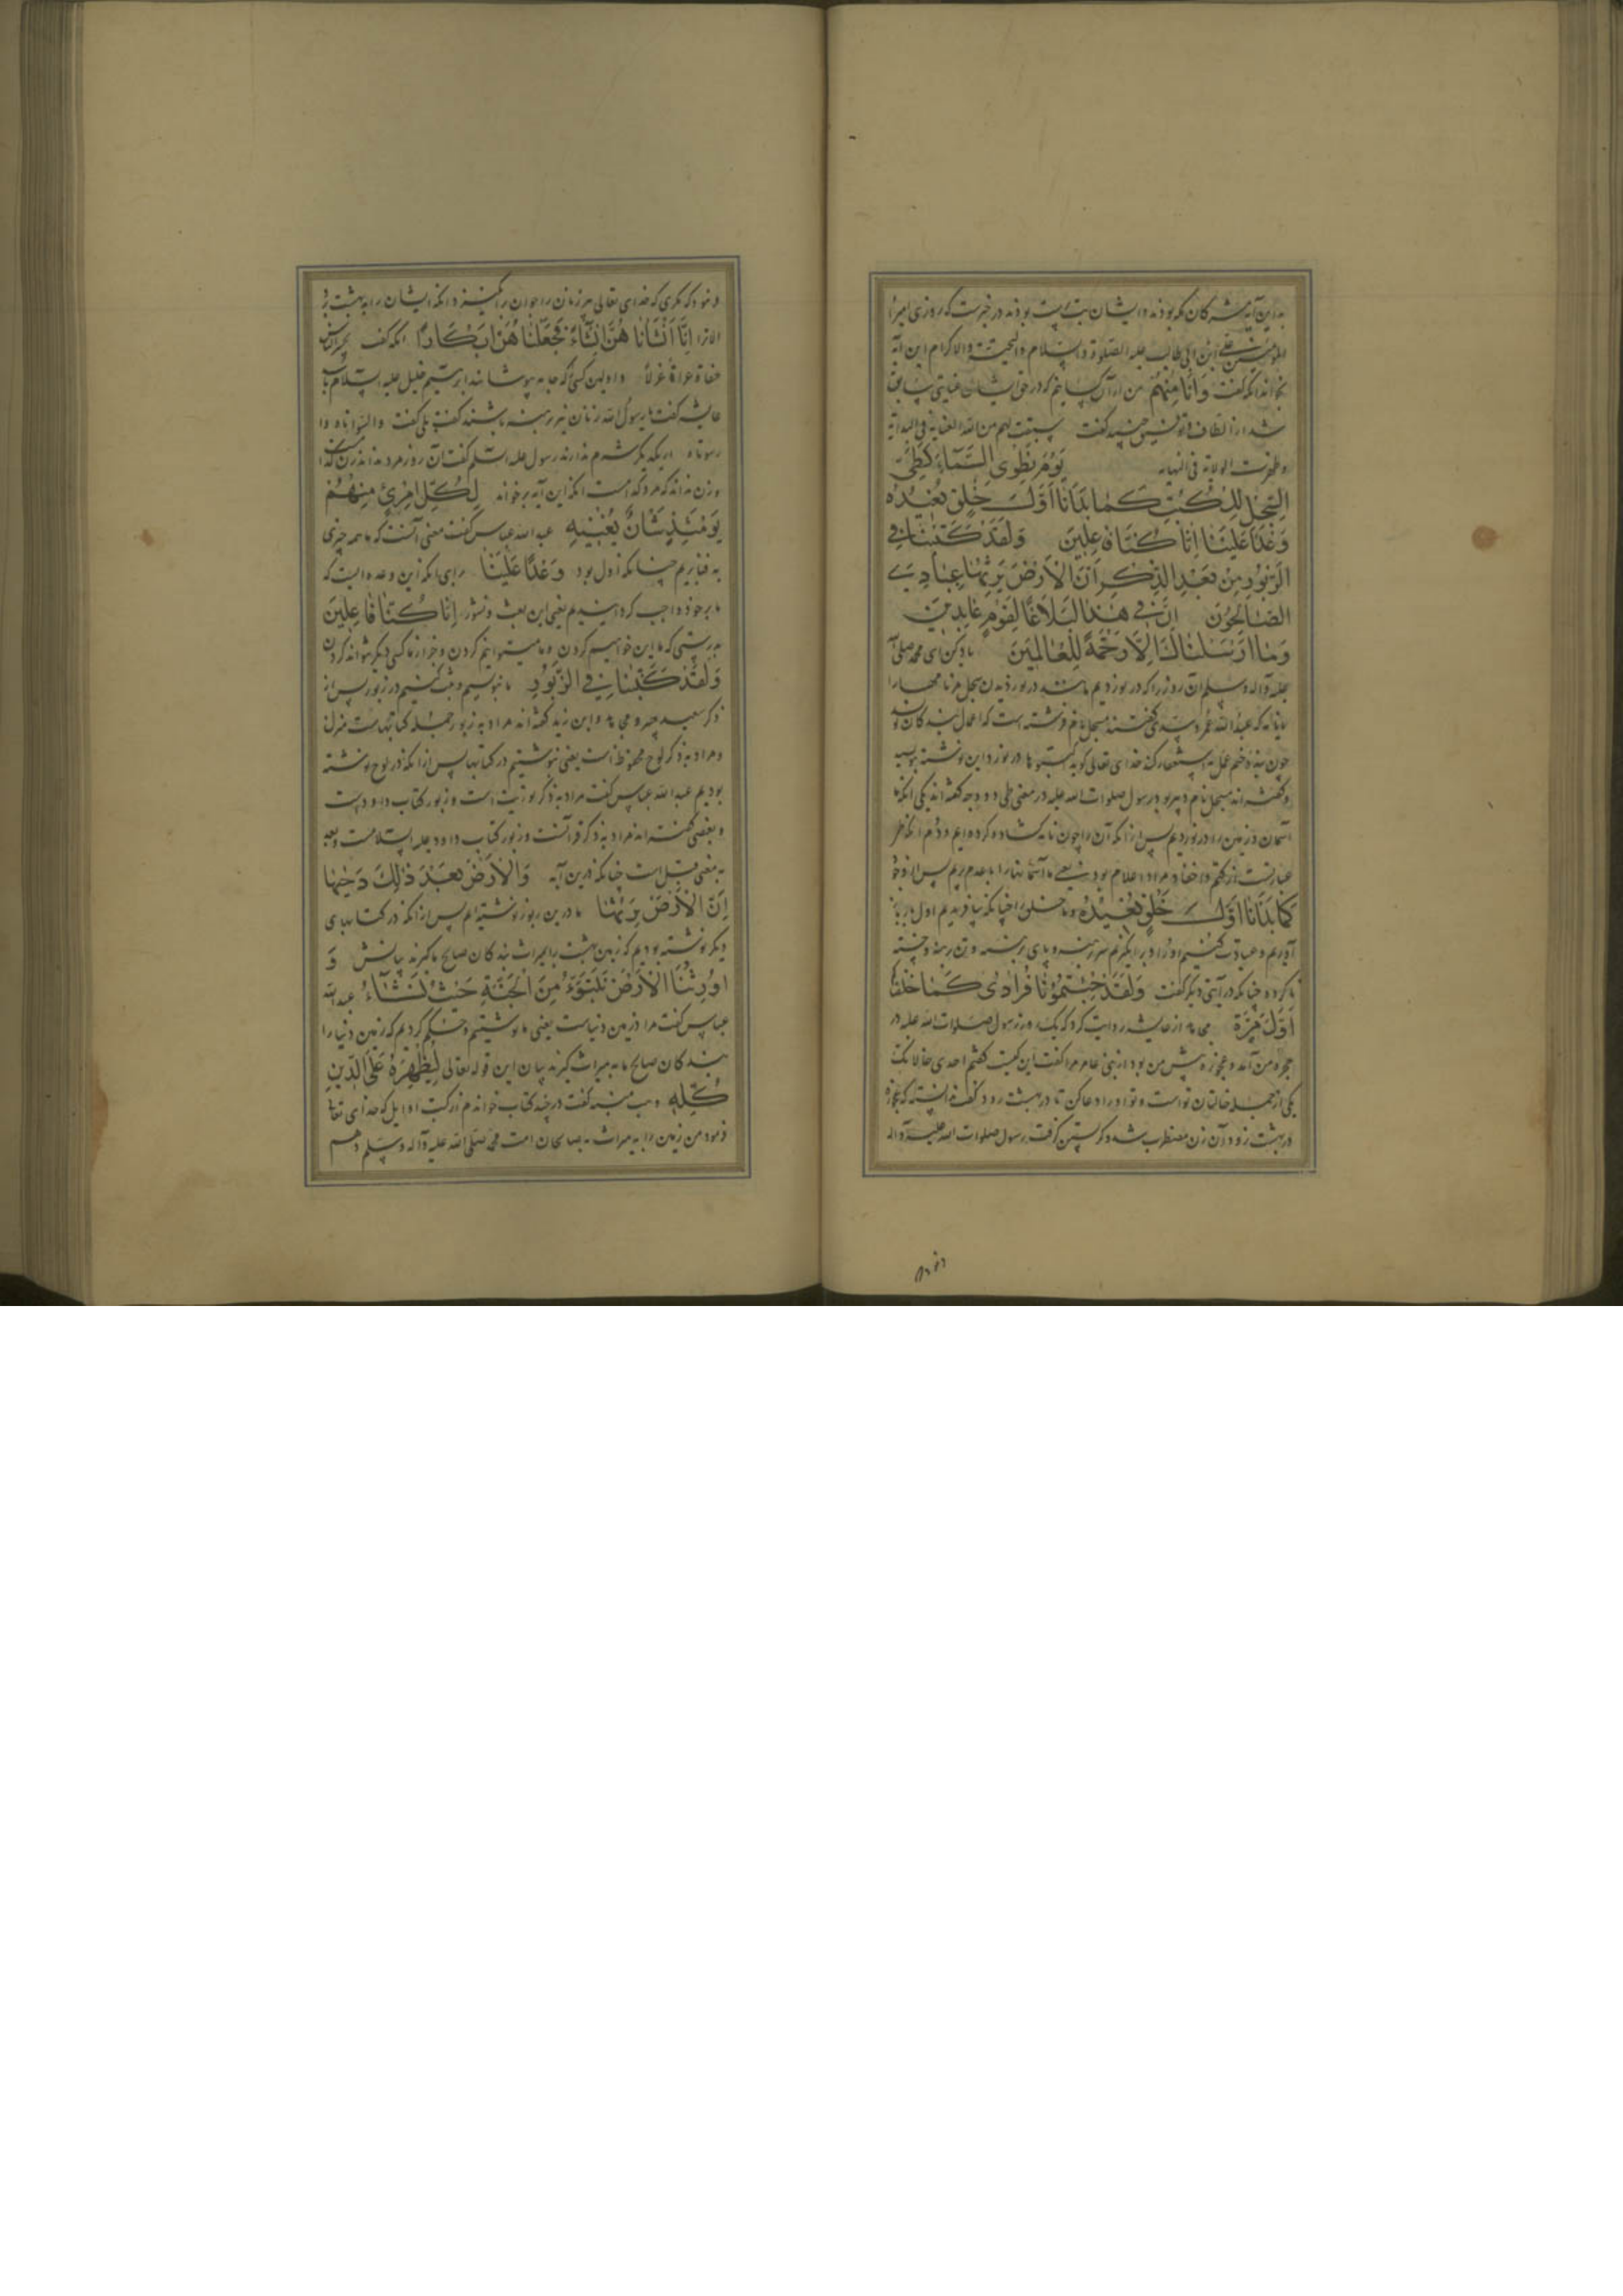 به این آیه مشرکان مکه بودند و ایشان بت پرست بودند در خبرست که روزی امیر
المؤمنین علی ابن ابی طالب علیه الصلوة والسلام والتحیة والاکرام این آیه
بخواند آنکه گفت وَاَنَا مِنهُم من از آن کسانیم که در حق ایشان عنایتی سابق
شد از الطاف و توفیق جنید گفت سبقت لهم من الله العنایة فی البدایة
وظهرت الولایة فی النهایة يَوْمَ نَطْوِى السَّمَآءَ كَطَىِّ
السِّجِلِّ لِلْكُتُبِ كَمٰا بَدَأنٰا اَوَّلَ خَلْقٍ نُعيدُهُ
وَعْدًا عَلَيْنٰا اِنّٰا كُنّٰا فٰاعِلينَ وَلَقَدْ كَتَبْنٰا فِى
الزَّبُورِ مِنْ بَعْدِ الذِّكْرِ اَنَّ الْاَرْضَ يَرِثُهٰا عِبٰادِىَ
الصّٰالِحُونَ اِنَّ فى هٰذٰا لَبَلٰاغًا لِقَوْمٍ عٰابِدينَ
وَمٰا اَرْسَلْنٰاكَ اِلّٰا رَحْمَةً لِلْعٰالَمينَ یاد کن ای محمد صلی الله
علیه وآله وسلم آن روز را که در نوردیم مانند در نوردیدن سجل مر نامهارا
که عبد الله عمر و سدی گفتند سجل نام فرشته است که اعمال بندگان نویسد
چون بنده ختم عمل به استغفار کند خدای تعالی گوید در نورد این نوشته
وگفته اند سجل نام دبیر بود رسول صلوات الله علیه در معنی طی دو وجه گفته اند یکی آنکه ما
آسمان و زمین را در نوردیم پس از آنکه آن را چون نامه گشاده کرده ایم دوم آنکه طی
عبارتست از کتم و اخفا و مراد اعدام بود یعنی ما آسمانها را با عدم بریم پس از وجود
كَمٰا بَدَأنٰا اَوَّلَ خَلْقٍ نُعيدُهُ و ما خلق را چنانکه بیافریدیم اول بار باز
آوریم و عبادت کنیم او را و برانگیزیم سر برهنه و پای برهنه و تن برهنه و ختنه
نا کرده چنانکه در آیتی دیگر گفت وَلَقَدْ جِئْتُمُونٰا فُرٰادىٰ كَمٰا خَلَقْنٰاكُمْ
اَوَّلَ مَرَّةٍ مجاهد از عایشه روایت کرد که یک روز رسول صلوات الله علیه در
حجره من آمد و عجوزه پیش من بود از بنی عامر مرا گفت این کیست گفتم احدی خالاتک
یکی از جمله خالتان تو است و تو او را دعا کن تا در بهشت رود گفت ندانسته که عجوزه
در بهشت نرود آن زن مضطرب شد و گریستن گرفت رسول صلوات الله علیه وآله
فرمود که مگری که خدای تعالی مر زنان را جوان برانگیزد و آنکه ایشان را به بهشت برد
الا ترا اِنّٰا اَنْشَأنٰا هُنَّ اِنْشٰاءً فَجَعَلْنٰا هُنَّ اَبْكٰارًا آنکه گفت یحشر الناس
حفاة عراة غرلا و اولین کسی که جامه پوشانند ابراهیم خلیل علیه السلام باشد
عایشه گفت یا رسول الله زنان نیز برهنه باشند گفت بلی گفت واسوأتاه وا
سوأتاه از یکدیگر شرم ندارند رسول علیه السلم گفت آن روز مرد نداند زن کدام
و زن نداند که مرد کدامست آنکه این آیه بر خواند لِكُلِّ امْرِئٍ مِنْهُمْ
يَوْمَئِذٍ شَأنٌ يُغْنيهِ عبد الله عباس گفت معنی آنست که ما همه چیزی
به فنا بریم چنانکه اول بود وَعْدًا عَلَيْنٰا برای آنکه این وعده ایست که
ما بر خود واجب گردانیدیم یعنی این بعث و نشور اِنّٰا كُنّٰا فٰاعِلينَ
بدرستی که ما این خواهیم کردن و ما میتوانیم کردن و جز از ما کسی دیگر نتواند کردن
وَلَقَدْ كَتَبْنٰا فِى الزَّبُورِ ما بنویسیم و ثبت کنیم در زبور پس از
ذکر سعید جبیر و مجاهد و ابن زید گفته اند مراد به زبور جمله کتابهاست منزل
و مراد به ذکر لوح محفوظ است یعنی بنوشتیم در کتابها پس از آنکه در لوح نوشته
بودیم عبد الله عباس گفت مراد به ذکر توریت است و زبور کتاب داودست
و بعضی گفته اند مراد به ذکر قرآنست و زبور کتاب داود علیه السلامست و بعد
به معنی قبل است چنانکه درین آیه وَالْاَرْضَ بَعْدَ ذٰلِكَ دَحٰيهٰا
اِنَّ الْاَرْضَ يَرِثُهٰا ما درین زبور نوشته ایم پس از آنکه در کتابهای
دیگر نوشته بودیم که زمین بهشت را بمیراث بندگان صالح ما گیرند بیانش وَ
اَوْرَثَنَا الْاَرْضَ نَتَبَوَّءُ مِنَ الْجَنَّةِ حَيْثُ نَشٰآءُ عبد الله
عباس گفت مراد زمین دنیاست یعنی ما نوشتیم و حکم کردیم که زمین دنیا را
بندگان صالح ما به میراث گیرند بیان این قوله تعالی لِيُظْهِرَهُ عَلَى الدّينِ
كُلِّهِ وهب منبه گفت در چند کتاب خواندم از کتب اوایل که خدای تعالی
فرمود من زمین را به میراث به صالحان امت محمد صلی الله علیه وآله وسلم دهم